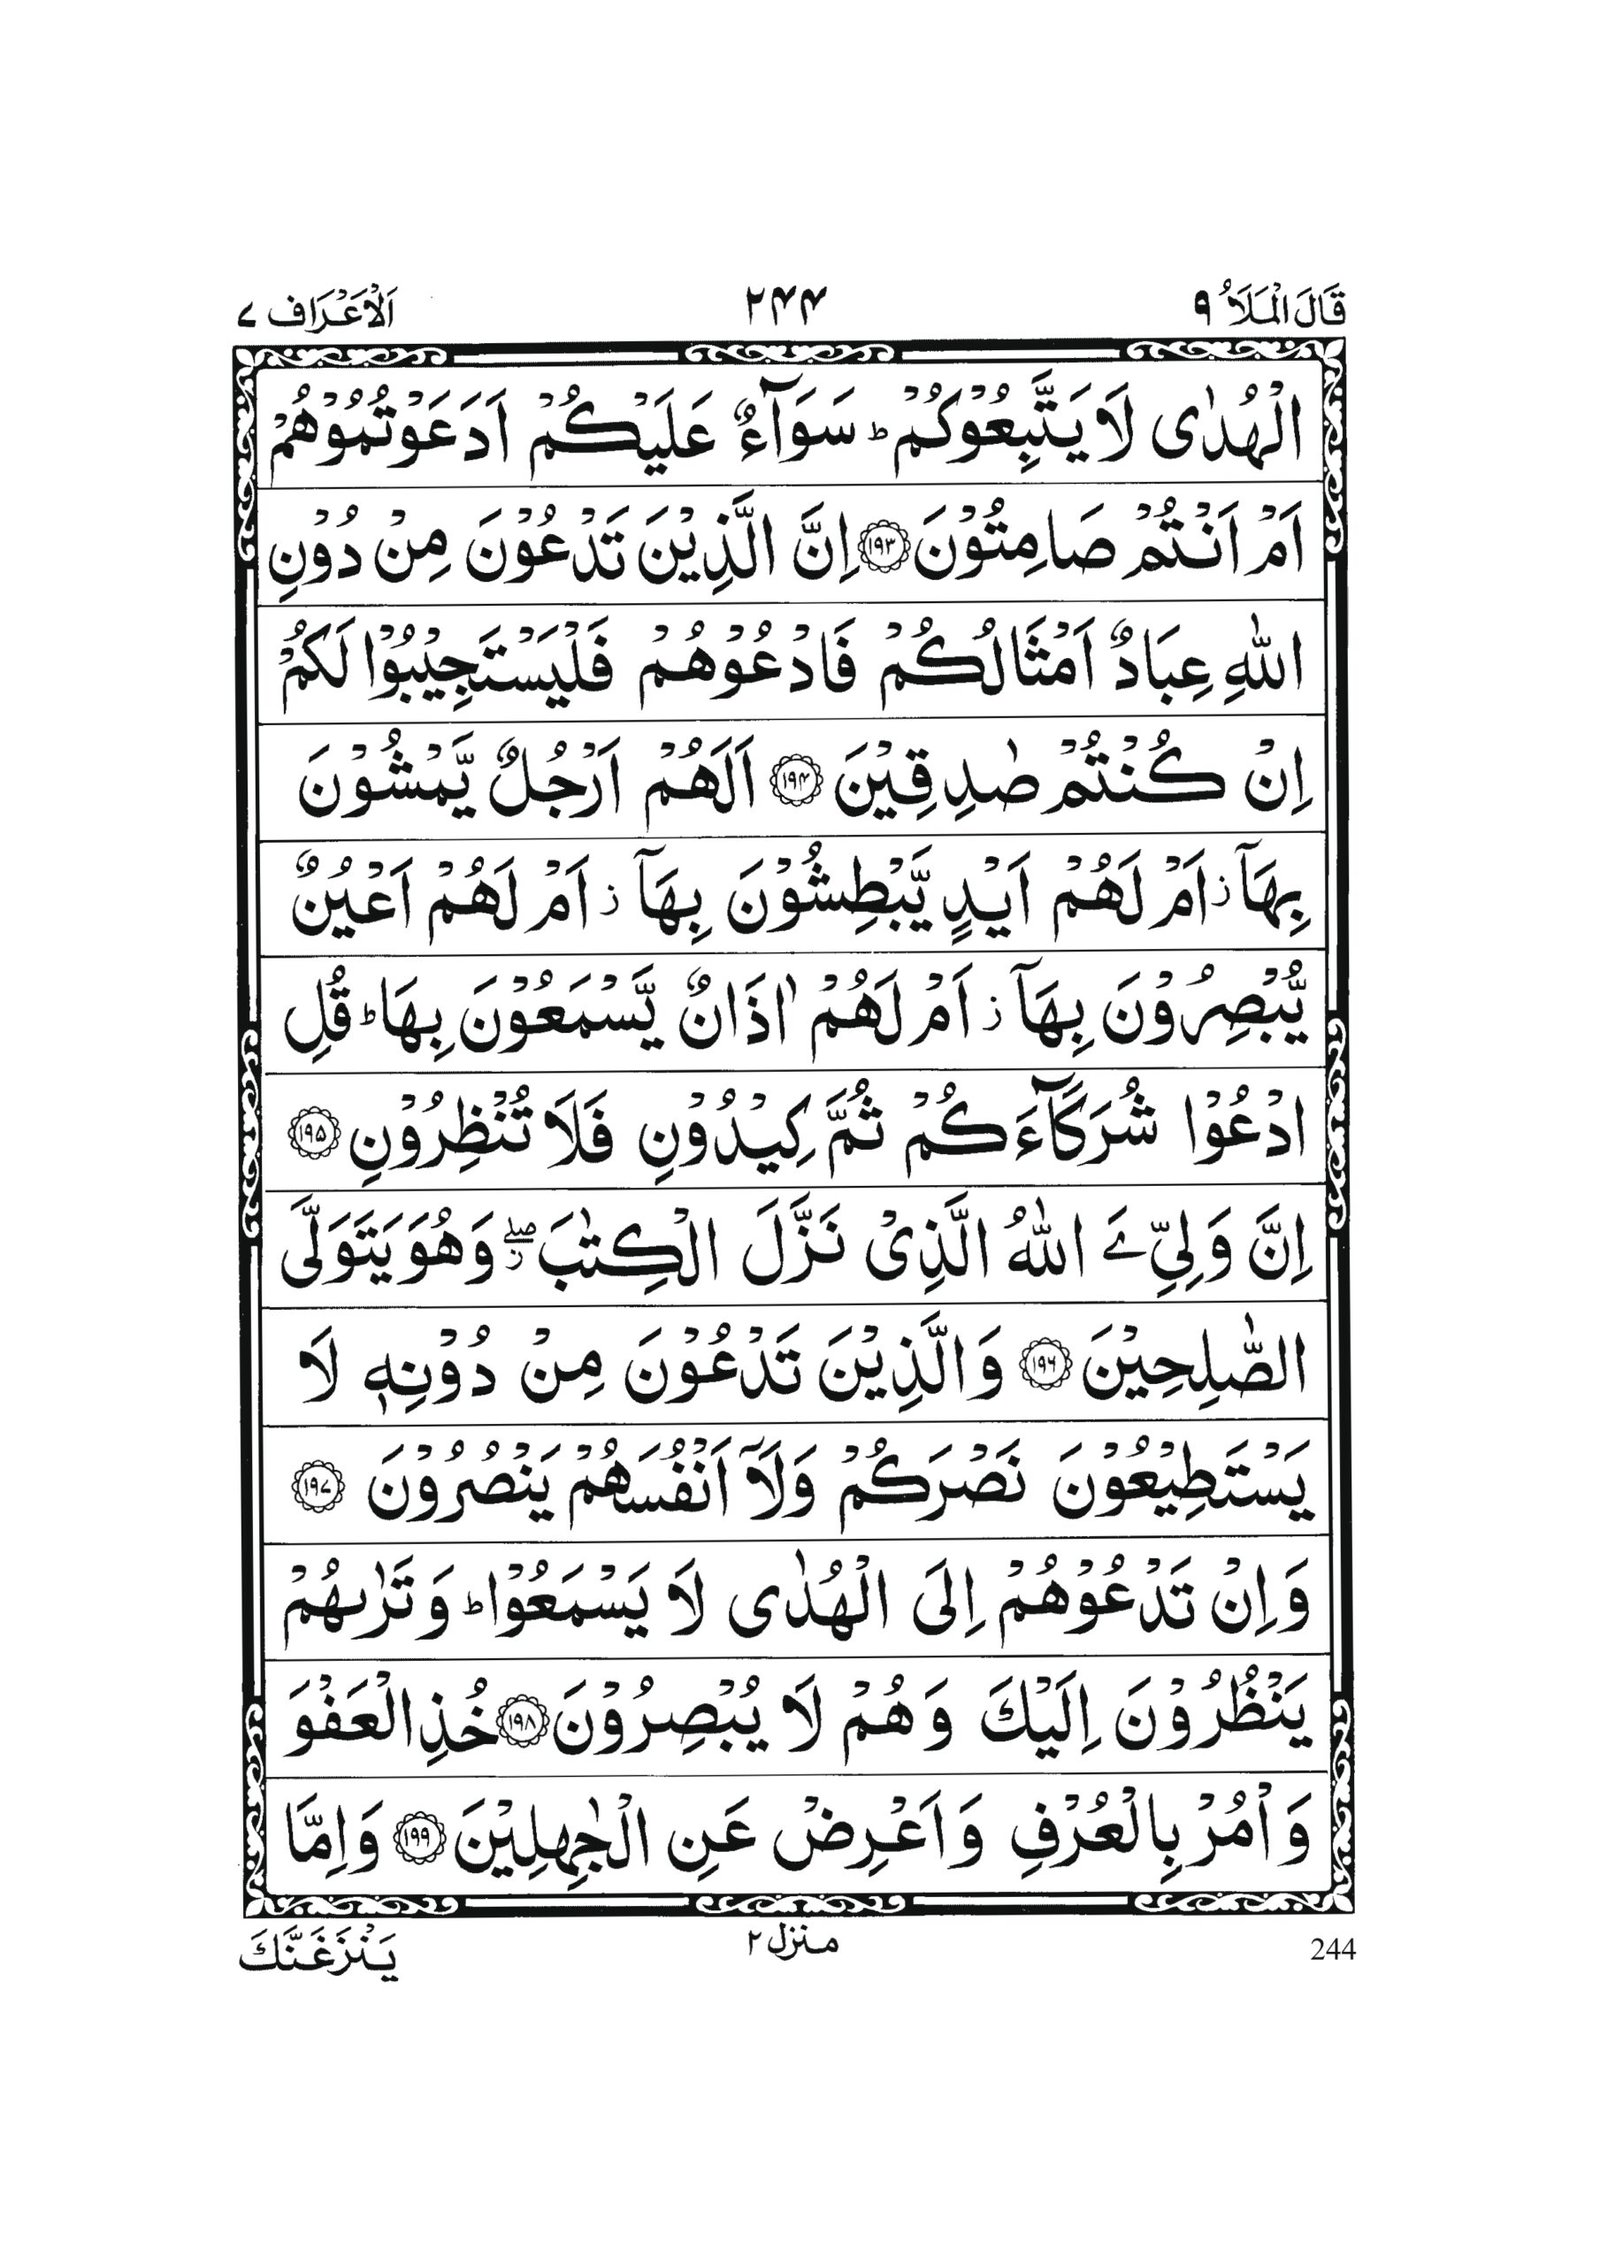 قَالَ الْمَلَاُ ۹ ۲۴۴ اَلْاَعْرَاف ۷
الْهُدٰی لَا یَتَّبِعُوْكُمْ ؕ سَوَآءٌ عَلَیْكُمْ اَدَعَوْتُمُوْهُمْ
اَمْ اَنْتُمْ صَامِتُوْنَ ﴿۱۹۳﴾ اِنَّ الَّذِیْنَ تَدْعُوْنَ مِنْ دُوْنِ
اللّٰهِ عِبَادٌ اَمْثَالُكُمْ فَادْعُوْهُمْ فَلْیَسْتَجِیْبُوْا لَكُمْ
اِنْ كُنْتُمْ صٰدِقِیْنَ ﴿۱۹۴﴾ اَلَهُمْ اَرْجُلٌ یَّمْشُوْنَ
بِهَاۤ ؗ اَمْ لَهُمْ اَیْدٍ یَّبْطِشُوْنَ بِهَاۤ ؗ اَمْ لَهُمْ اَعْیُنٌ
یُّبْصِرُوْنَ بِهَاۤ ؗ اَمْ لَهُمْ اٰذَانٌ یَّسْمَعُوْنَ بِهَا ؕ قُلِ
ادْعُوْا شُرَكَآءَكُمْ ثُمَّ كِیْدُوْنِ فَلَا تُنْظِرُوْنِ ﴿۱۹۵﴾
اِنَّ وَلِیِّ ےَ اللّٰهُ الَّذِیْ نَزَّلَ الْكِتٰبَ ۖؗ وَهُوَ یَتَوَلَّی
الصّٰلِحِیْنَ ﴿۱۹۶﴾ وَالَّذِیْنَ تَدْعُوْنَ مِنْ دُوْنِهٖ لَا
یَسْتَطِیْعُوْنَ نَصْرَكُمْ وَلَاۤ اَنْفُسَهُمْ یَنْصُرُوْنَ ﴿۱۹۷﴾
وَاِنْ تَدْعُوْهُمْ اِلَی الْهُدٰی لَا یَسْمَعُوْا ؕ وَتَرٰىهُمْ
یَنْظُرُوْنَ اِلَیْكَ وَهُمْ لَا یُبْصِرُوْنَ ﴿۱۹۸﴾ خُذِ الْعَفْوَ
وَاْمُرْ بِالْعُرْفِ وَاَعْرِضْ عَنِ الْجٰهِلِیْنَ ﴿۱۹۹﴾ وَاِمَّا
244 منزل ۲ یَنْزَغَنَّكَ